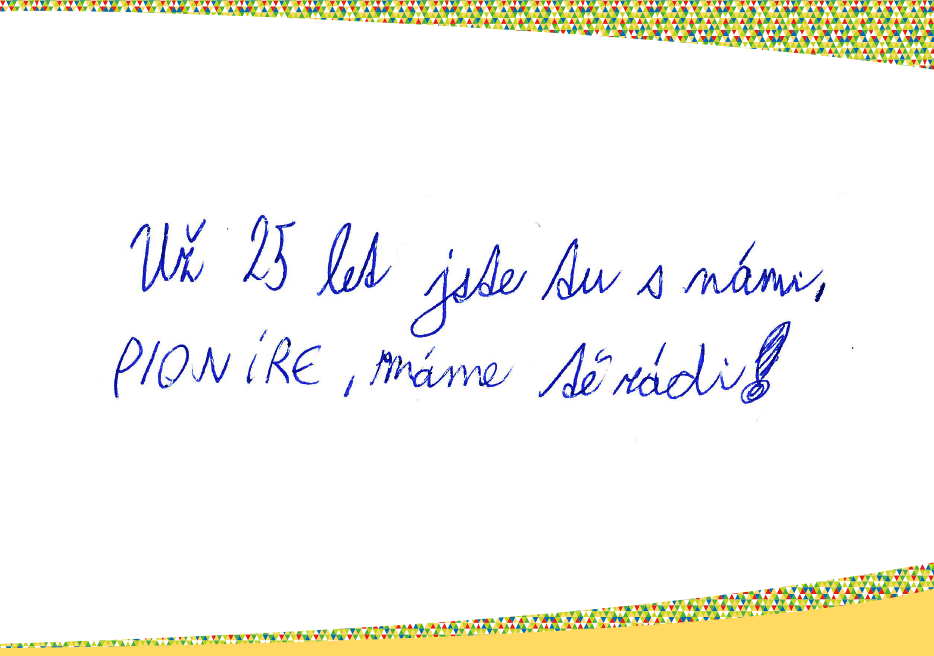 Už 25 let jste tu s námi,
PIONÍRE, máme tě rádi!